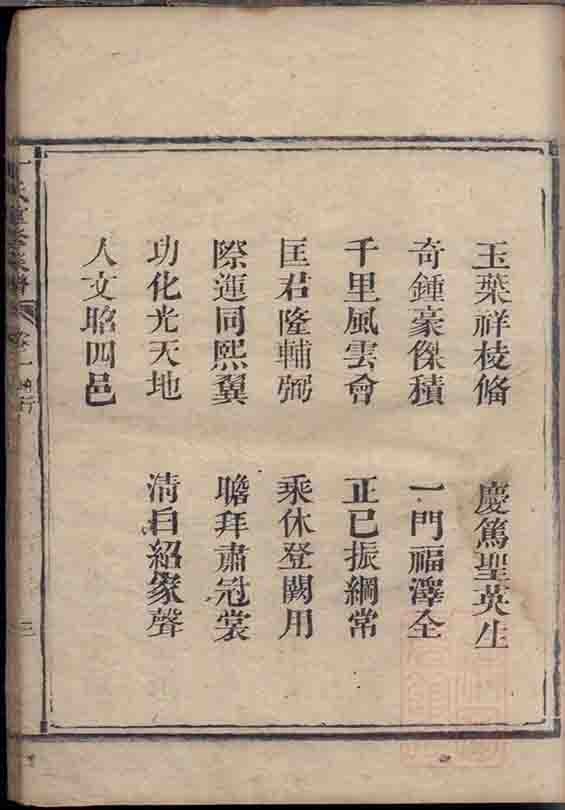 玉葉祥棱脩　慶篤聖英生
奇鍾豪傑積　一門福澤全
千里風雲會　正己振綱常
匡君隆輔弼　乘休登闕用
際運同熙翼　瞻拜肅冠裳
功化光天地　清白紹家聲
人文昭四邑
氏重修族譜
卷一
三